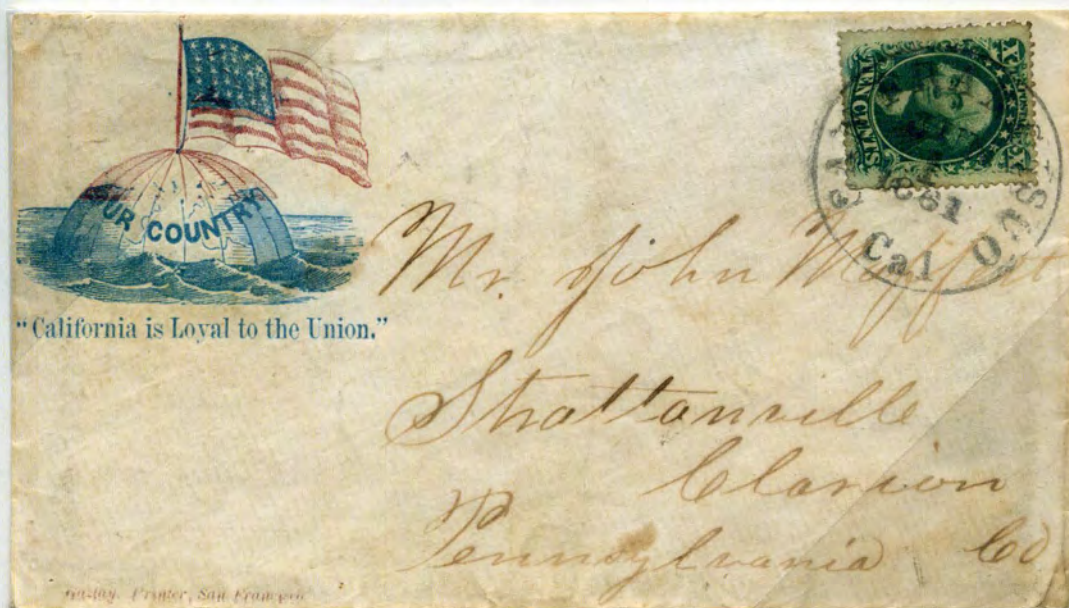 OUR COUNTRY
"California is Loyal to the Union."
X X
TEN CENTS.
SAN FRANCISCO
1861
Cal
Mr. John Moffett
Strattanville
Clarion
Pennsylvania Co
Printer, San Francisco